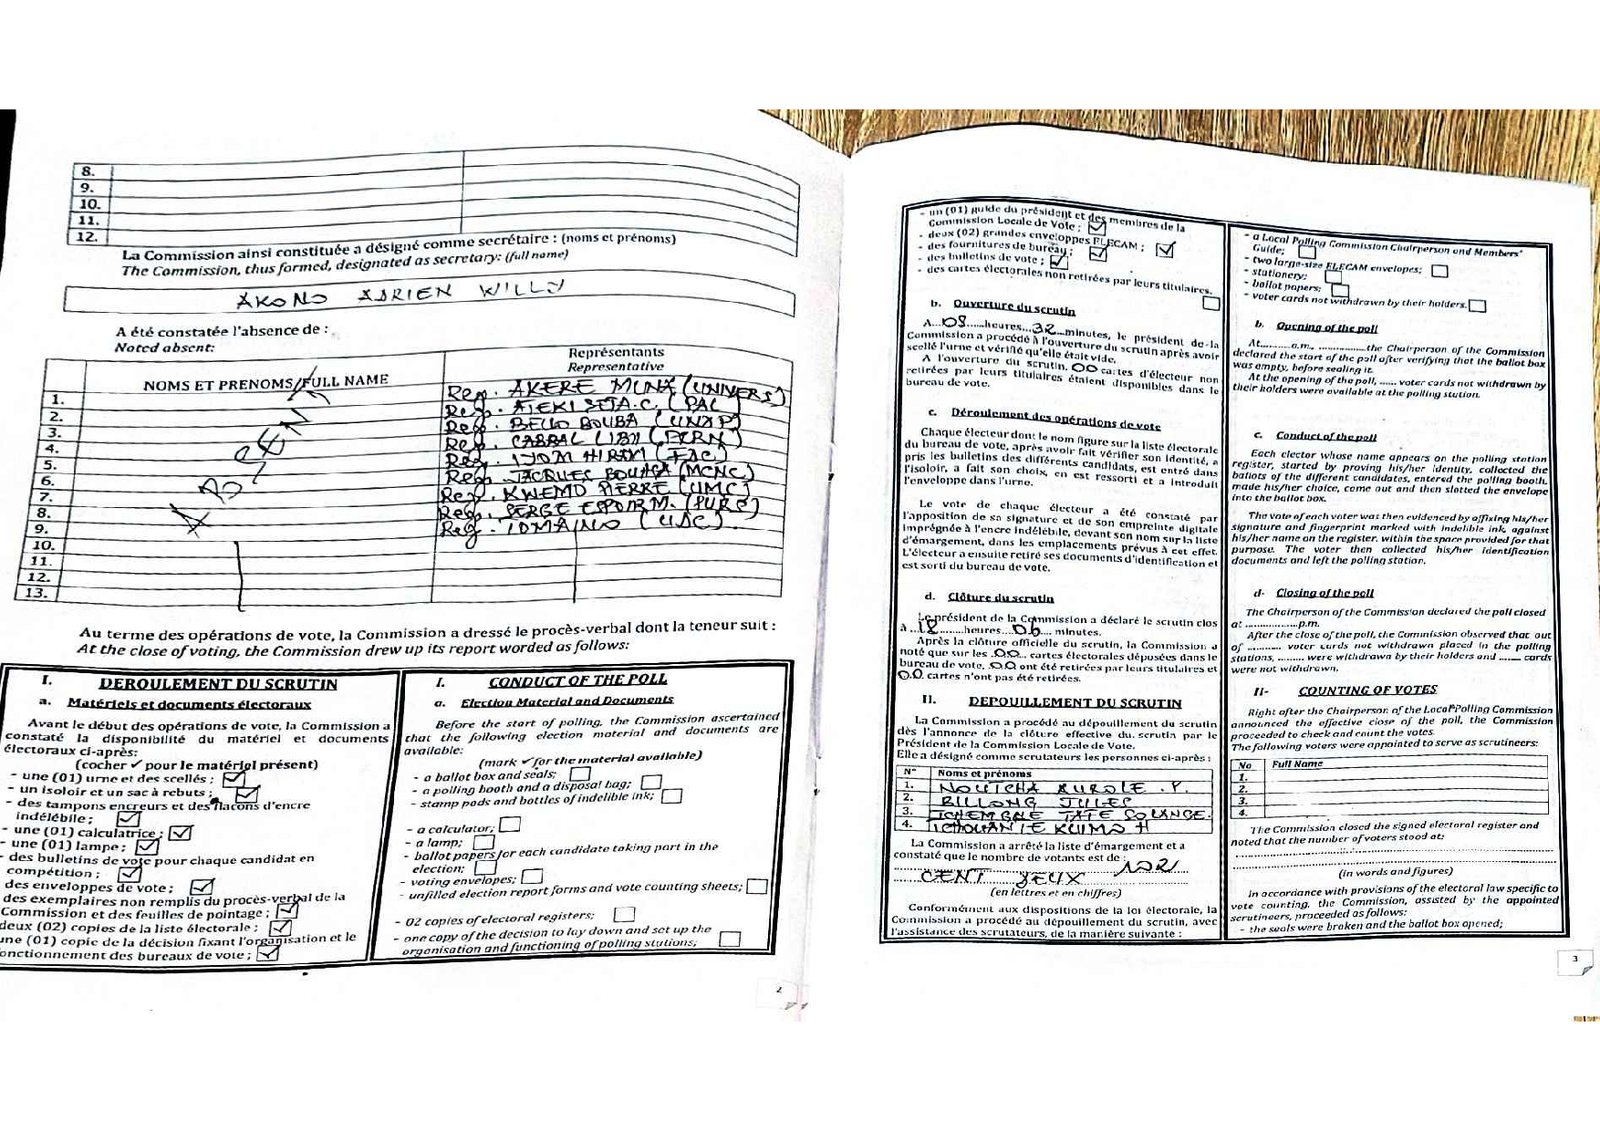 8.
9.
10.
11.
12.
La Commission ainsi constituée a désigné comme secrétaire : (noms et prénoms)
The Commission, thus formed, designated as secretary: (full name)
AKONO ADRIEN WILLY
A été constatée l'absence de :
Noted absent:
NOMS ET PRENOMS/FULL NAME
Représentants
Representative
1. Rep. AKERE MUNA (UNIVERS)
2. Rep. ATEKI SETA.C. (PAL
3. Rep. BELLO BOUBA (UNDP)
4. Rep. CABRAL LIBII (PCRN)
5. Rep. IYOM HIRAM (FDC)
6. Rep. JACQUES BOUHGA (MCNC)
7. Rep. KWEMO PIERRE (UMC)
8. Rep. SERGE ESPOIR M. (PURS)
9. Rep. TOMAINO (UDC)
10.
11.
12.
13.
Au terme des opérations de vote, la Commission a dressé le procès-verbal dont la teneur suit :
At the close of voting, the Commission drew up its report worded as follows:
I. DEROULEMENT DU SCRUTIN
a. Matériels et documents électoraux
Avant le début des opérations de vote, la Commission a
constaté la disponibilité du matériel et documents
électoraux ci-après:
(cocher ✓ pour le matériel présent)
- une (01) urne et des scellés ; ✓
- un isoloir et un sac à rebuts ; ✓
- des tampons encreurs et des flacons d'encre
indélébile ; ✓
- une (01) calculatrice ; ✓
- une (01) lampe ; ✓
- des bulletins de vote pour chaque candidat en
compétition ; ✓
des enveloppes de vote ; ✓
des exemplaires non remplis du procès-verbal de la
Commission et des feuilles de pointage ; ✓
deux (02) copies de la liste électorale ; ✓
une (01) copie de la décision fixant l'organisation et le
onctionnement des bureaux de vote ; ✓
I. CONDUCT OF THE POLL
a. Election Material and Documents
Before the start of polling, the Commission ascertained
that the following election material and documents are
available:
(mark ✓ for the material available)
- a ballot box and seals;
- a polling booth and a disposal bag;
- stamp pads and bottles of indelible ink;
- a calculator;
- a lamp;
- ballot papers for each candidate taking part in the
election;
- voting envelopes;
- unfilled election report forms and vote counting sheets;
- 02 copies of electoral registers;
- one copy of the decision to lay down and set up the
organisation and functioning of polling stations;
2
- un (01) guide du président et des membres de la
Commission Locale de Vote ; ✓
- deux (02) grandes enveloppes ELECAM ; ✓
- des fournitures de bureau ; ✓
- des bulletins de vote ; ✓
- des cartes électorales non retirées par leurs titulaires.
b. Ouverture du scrutin
A...08......heures...32...minutes, le président de la
Commission a procédé à l'ouverture du scrutin après avoir
scellé l'urne et vérifié qu'elle était vide.
A l'ouverture du scrutin, 00 cartes d'électeur non
retirées par leurs titulaires étaient disponibles dans le
bureau de vote.
c. Déroulement des opérations de vote
Chaque électeur dont le nom figure sur la liste électorale
du bureau de vote, après avoir fait vérifier son identité, a
pris les bulletins des différents candidats, est entré dans
l'isoloir, a fait son choix, en est ressorti et a introduit
l'enveloppe dans l'urne.
Le vote de chaque électeur a été constaté par
l'apposition de sa signature et de son empreinte digitale
imprégnée à l'encre indélébile, devant son nom sur la liste
d'émargement, dans les emplacements prévus à cet effet.
L'électeur a ensuite retiré ses documents d'identification et
est sorti du bureau de vote.
d. Clôture du scrutin
Le président de la Commission a déclaré le scrutin clos
A ...18.........heures...06.... minutes.
Après la clôture officielle du scrutin, la Commission a
noté que sur les .00... cartes électorales déposées dans le
bureau de vote, 00 ont été retirées par leurs titulaires et
00 cartes n'ont pas été retirées.
II. DEPOUILLEMENT DU SCRUTIN
La Commission a procédé au dépouillement du scrutin
dès l'annonce de la clôture effective du scrutin par le
Président de la Commission Locale de Vote.
Elle a désigné comme scrutateurs les personnes ci-après :
N° Noms et prénoms
1. NOUTCHA AUROLE .P.
2. BILLONG JULES
3. TCHEMBALE TATE SOLANGE.
4. TCHOUANTE KUIMO H
La Commission a arrêté la liste d'émargement et a
constaté que le nombre de votants est de : 102
CENT DEUX
(en lettres et en chiffres)
Conformément aux dispositions de la loi électorale, la
Commission a procédé au dépouillement du scrutin, avec
l'assistance des scrutateurs, de la manière suivante :
- a Local Polling Commission Chairperson and Members'
Guide;
- two large-size ELECAM envelopes;
- stationery;
- ballot papers;
- voter cards not withdrawn by their holders.
b. Opening of the poll
At...........a.m., .................the Chairperson of the Commission
declared the start of the poll after verifying that the ballot box
was empty, before sealing it.
At the opening of the poll, ...... voter cards not withdrawn by
their holders were available at the polling station.
c. Conduct of the poll
Each elector whose name appears on the polling station
register, started by proving his/her identity, collected the
ballots of the different candidates, entered the polling booth,
made his/her choice, come out and then slotted the envelope
into the ballot box.
The vote of each voter was then evidenced by affixing his/her
signature and fingerprint marked with indelible ink, against
his/her name on the register, within the space provided for that
purpose. The voter then collected his/her identification
documents and left the polling station.
d- Closing of the poll
The Chairperson of the Commission declared the poll closed
at ..................p.m.
After the close of the poll, the Commission observed that out
of ........... voter cards not withdrawn placed in the polling
stations, ........ were withdrawn by their holders and ....... cards
were not withdrawn.
II- COUNTING OF VOTES
Right after the Chairperson of the Local Polling Commission
announced the effective close of the poll, the Commission
proceeded to check and count the votes.
The following voters were appointed to serve as scrutineers:
No Full Name
1.
2.
3.
4.
The Commission closed the signed electoral register and
noted that the number of voters stood at:
(in words and figures)
In accordance with provisions of the electoral law specific to
vote counting, the Commission, assisted by the appointed
scrutineers, proceeded as follows:
- the seals were broken and the ballot box opened;
3